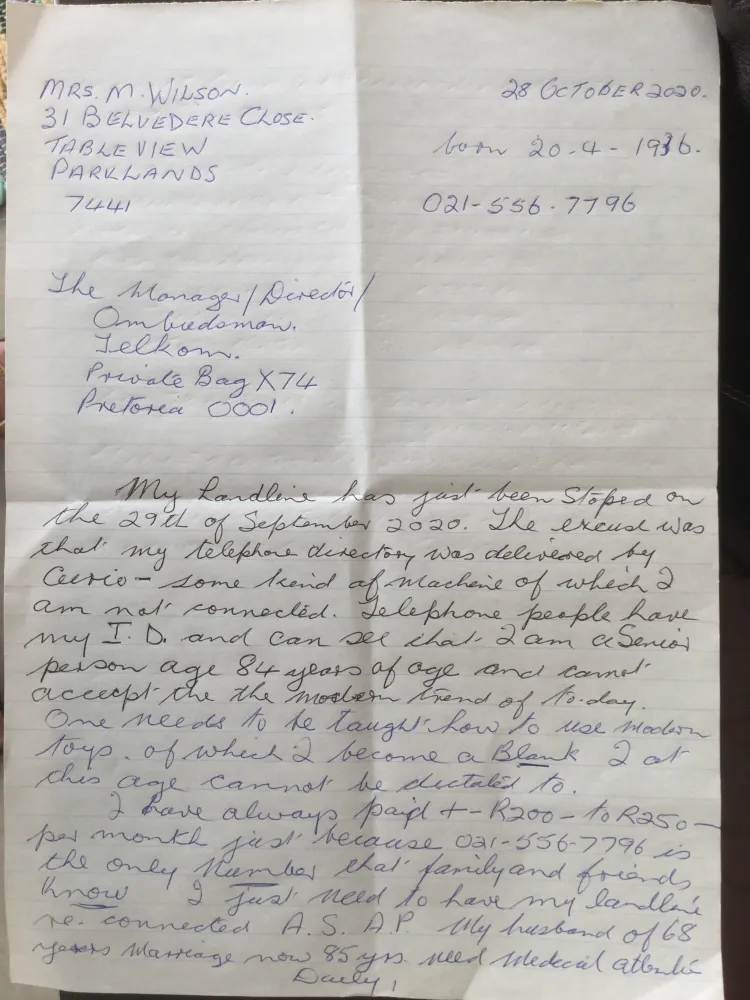 MRS. M. WILSON.
28 OCTOBER 2020.
31 BELVEDERE CLOSE.
TABLE VIEW
born 20.4-1936.
PARKLANDS
7441
021-556.7796
The Manager/Director/
Ombudsman.
Telkom.
Private Bag X74
Pretoria 0001.
My Landline has just been Stoped on
the 29th of September 2020. The excuse was
that my telephone directory was delivered by
- some kind of Machine of which I
am not connected. Telephone people have
my I.D. and can see that I am a Senior
person age 84 years of age and cannot
accept the the modern trend of to-day.
One needs to be taught how to use modern
toys. of which I become a Blank I at
this age cannot be dictated to.
I have always paid +-R200-to R250-
per month just because 021-556-7796 is
the only Number that family and friends
Know I just need to have my landline
re-connected A.S.A.P. My husband of 68
years Marriage now 85 yrs. need Medical
Daily,